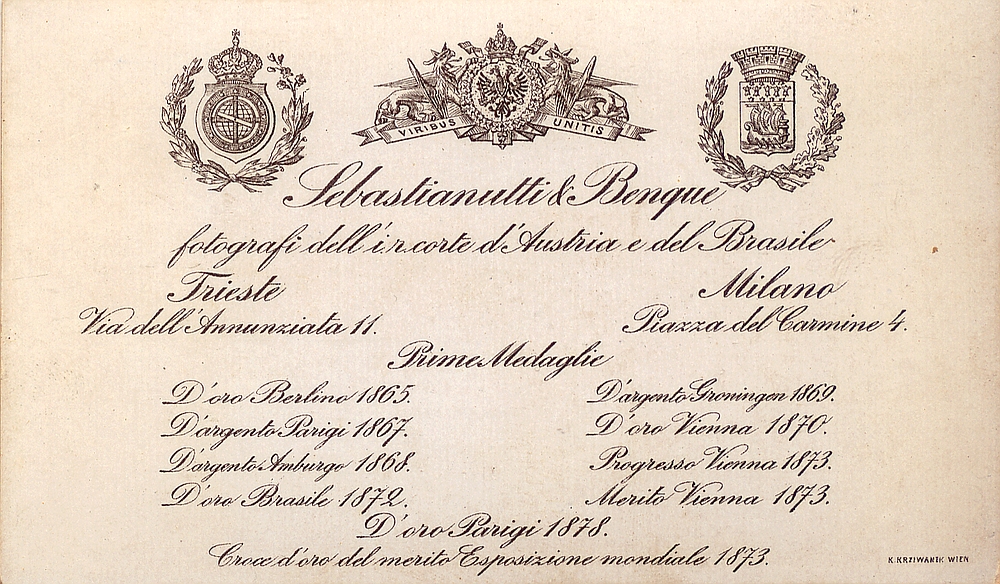 VIRIBUS UNITIS
Sebastianutti & Benque
fotografi dell'i.r.corte d'Austria e del Brasile
Trieste Milano
Via dell'Annunziata 11. Piazza del Carmine 4.
Prime Medaglie
D'oro Berlino 1865. D'argento Groningen 1869.
D'argento Parigi 1867. D'oro Vienna 1870.
D'argento Amburgo 1868. Progresso Vienna 1873.
D'oro Brasile 1872. Merito Vienna 1873.
D'oro Parigi 1878.
Croce d'oro del merito Esposizione mondiale 1873.
K.KRZIWANEK WIEN